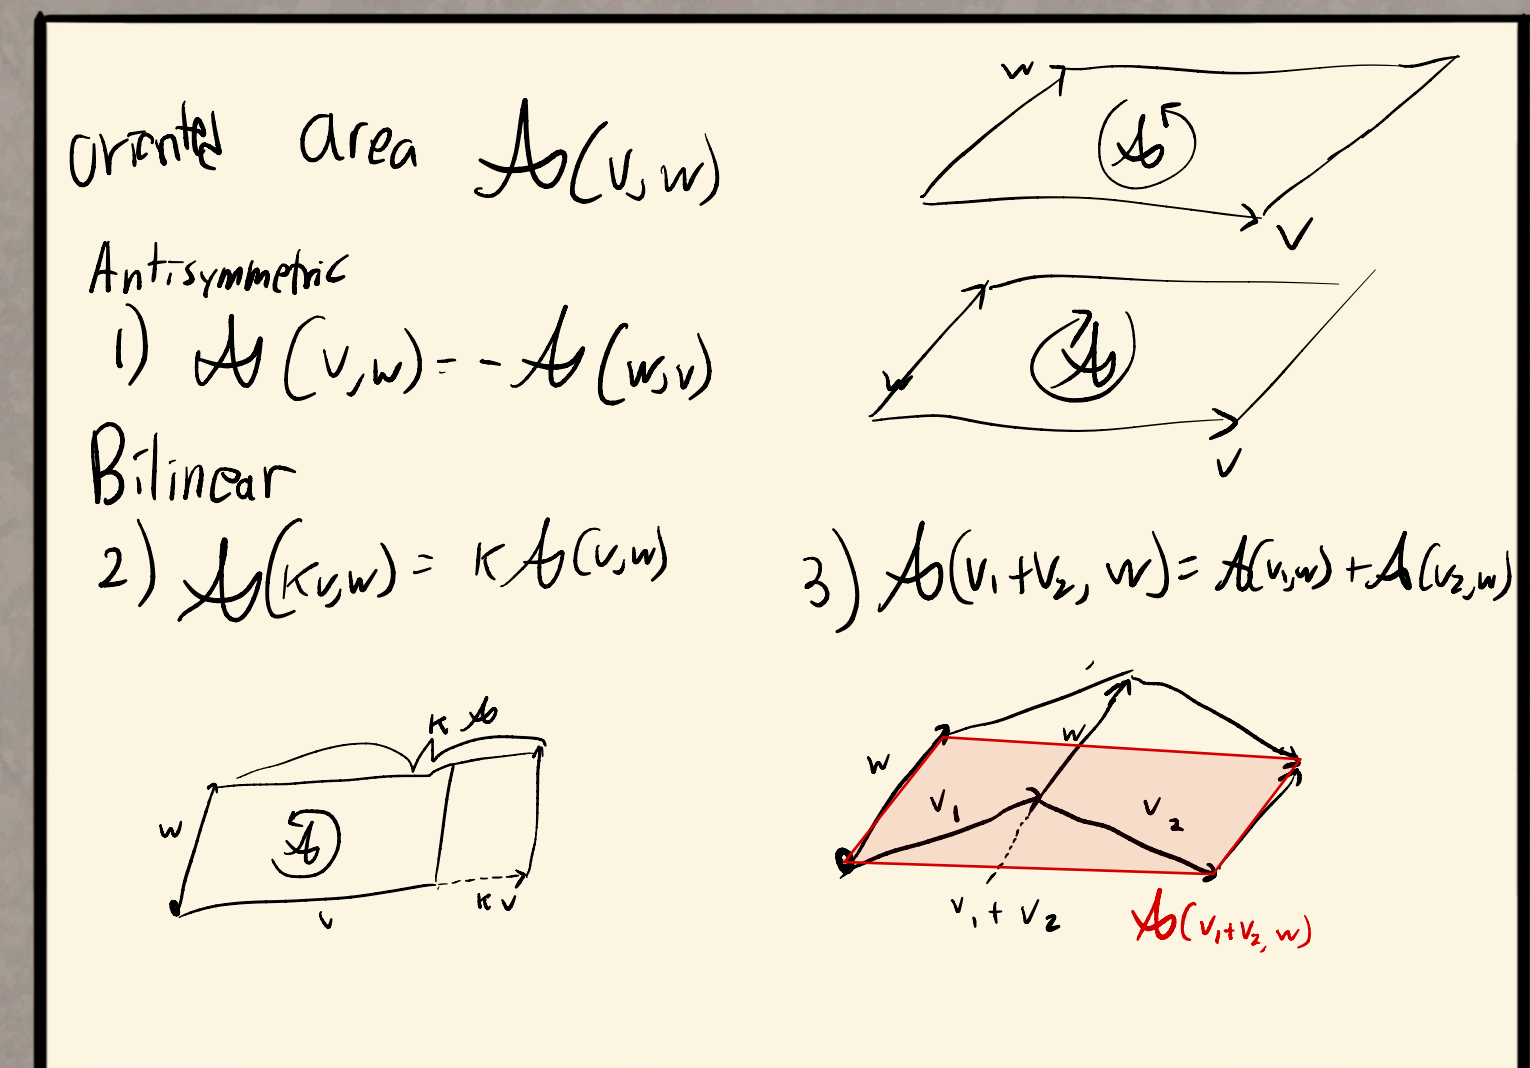 oriented area A(v, w)
w
A
v
Antisymmetric
1) A(v, w) = - A(w, v)
w
A
v
Bilinear
2) A(kv, w) = k A(v, w)
3) A(v₁ + v₂, w) = A(v₁, w) + A(v₂, w)
k A
w
A
v
kv
w
w
v₁
v₂
v₁ + v₂
A(v₁+v₂, w)